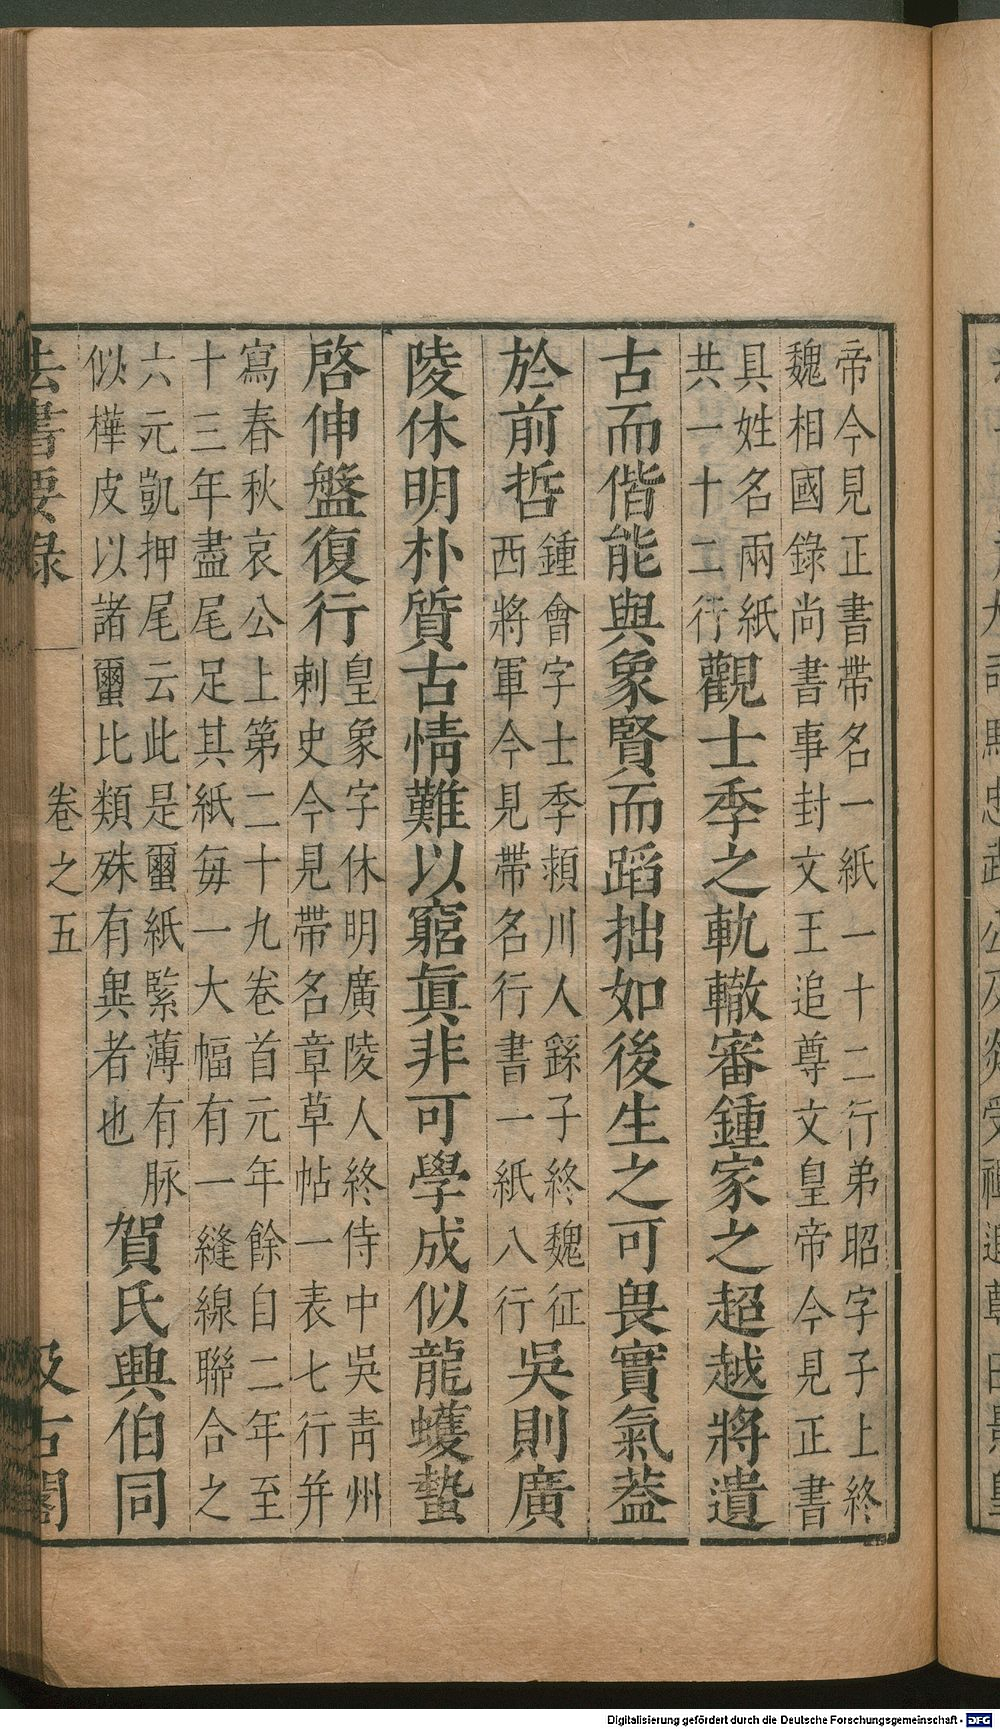 帝今見正書帶名一紙一十二行弟昭字子上終
魏相國錄尚書事封文王追尊文皇帝今見正書
具姓名兩紙
共一十二行
觀士季之軌轍審鍾家之超越將遺
古而偕能與象賢而蹈拙如後生之可畏實氣蓋
於前哲
鍾會字士季潁川人繇子終魏征
西將軍今見帶名行書一紙八行
吳則廣
陵休明朴質古情難以窮眞非可學成似龍蠖蟄
啓伸盤復行
皇象字休明廣陵人終侍中吳靑州
刺史今見帶名章草帖一表七行幷
寫春秋哀公上第二十九卷首元年餘自二年至
十三年盡尾足其紙每一大幅有一縫線聯合之
六元凱押尾云此是蠒紙緊薄有脉
似樺皮以諸蠒比類殊有異者也
賀氏興伯同
法書要錄
卷之五
汲古閣
Digitalisierung gefördert durch die Deutsche Forschungsgemeinschaft - DFG